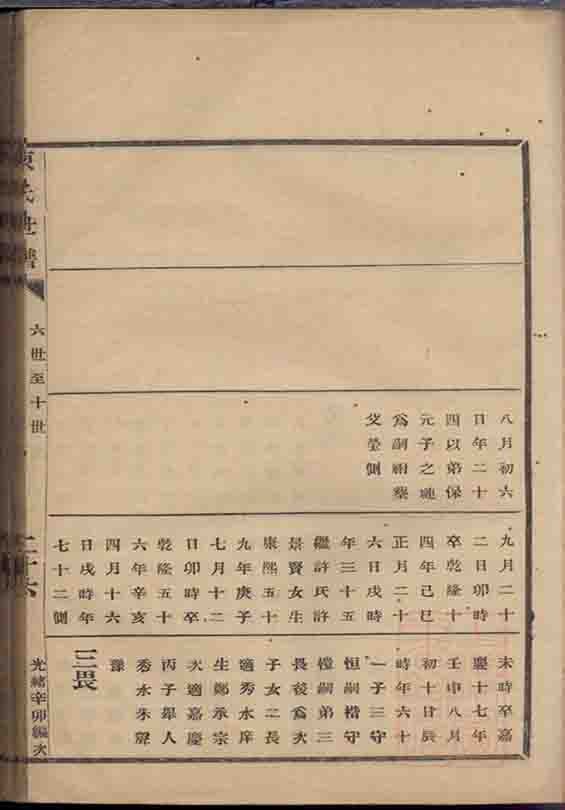 八月初六
日年二十
四以弟保
元子之璉
為嗣祔葬
父塋側
九月二十
二日卯時
卒乾隆十
四年己巳
正月二十
六日戌時
年三十五
繼許氏許
景賢女生
康熙五十
九年庚子
七月十二
日卯時卒
乾隆五十
六年辛亥
四月十六
日戌時年
七十二側
未時卒嘉
慶十七年
壬申八月
初十日辰
時年六十
一子三守
恒嗣楷守
嗣弟三
畏後為次
子女二長
適秀水庠
生鄭承宗
次適嘉慶
丙子舉人
秀水朱聲
三畏
氏世譜
六世至十世
光緒辛卯編次